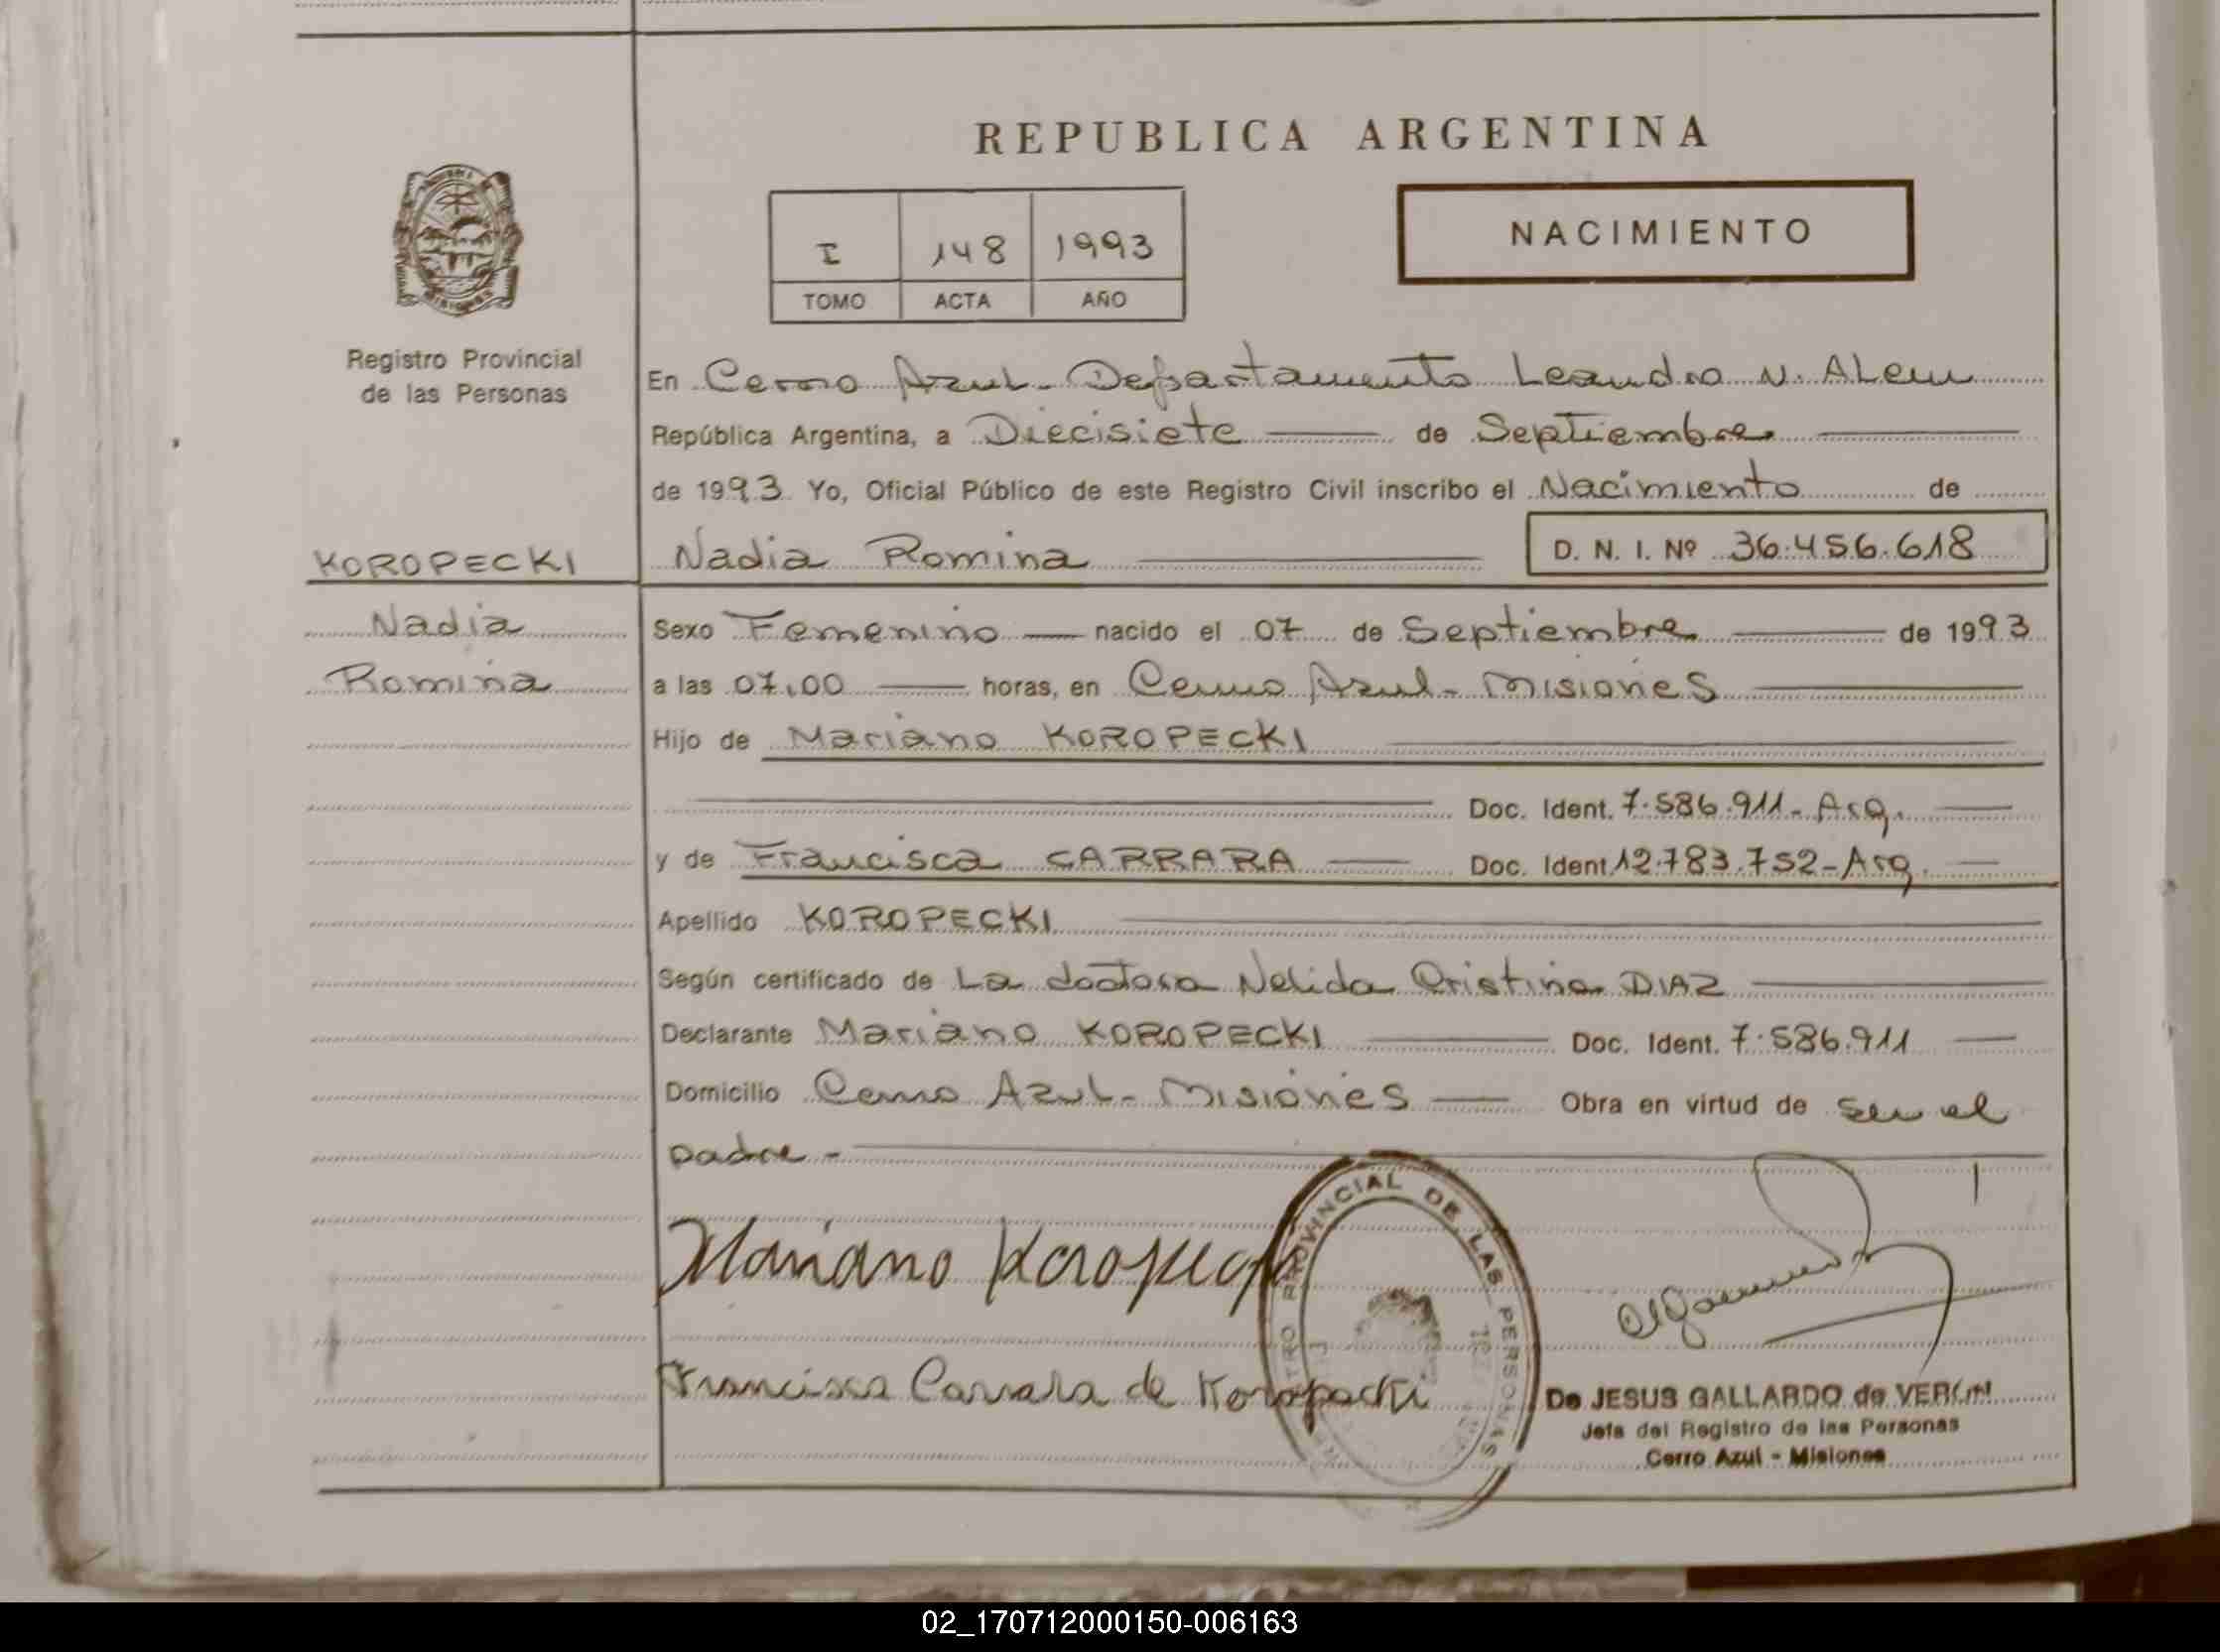 REPUBLICA ARGENTINA
I 148 1993
TOMO ACTA AÑO
NACIMIENTO
Registro Provincial
de las Personas
KOROPECKI
Nadia
Romina
En Cerro Azul - Departamento Leandro N. ALem
República Argentina, a Diecisiete de Septiembre
de 1993 Yo, Oficial Público de este Registro Civil inscribo el Nacimiento de
Nadia Romina D. N. I. Nº 36.456.618
Sexo Femenino nacido el 07 de Septiembre de 1993
a las 07,00 horas, en Cerro Azul - Misiones
Hijo de Mariano KOROPECKI
Doc. Ident. 7.586.911 - Arg.
y de Francisca CARRARA Doc. Ident. 12.783.752 - Arg.
Apellido KOROPECKI
Según certificado de La doctora Nelida Cristina DIAZ
Declarante Mariano KOROPECKI Doc. Ident. 7.586.911
Domicilio Cerro Azul - Misiones Obra en virtud de ser el
padre -
Mariano
PROVINCIAL DE LAS PERSONAS
Francisca Carrara de Koropecki
De JESUS GALLARDO de
Jefa del Registro de las Personas
Cerro Azul - Misiones
02_170712000150-006163